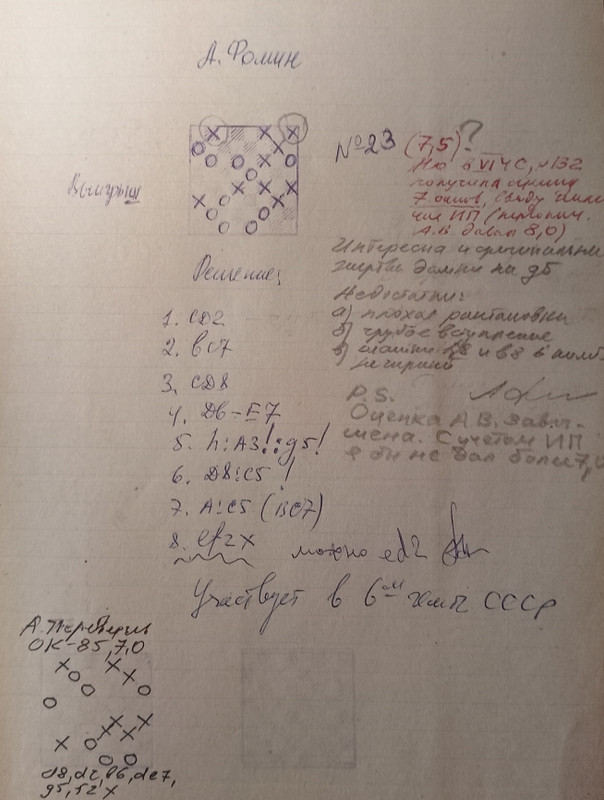 А. Фомин
№23 (7,5)?
Но в VI ЧС, №132
получила оценку
7 очков, ввиду
ИП
А.В. давал 8,0)
Выигрыш
Интересна и оригинальна
жертва дамки на g5
Недостатки:
а) плохая расстановка
б) грубое вступление
в)
Решение:
1. CD2
2. bC7
3. CD8
4. D6-E7
5. h:A3!:g5!
6. D8:C5!
7. A:C5 (BC7)
8. ef2X можно ed2
P.S.
Оценка А.В. завы-
шена. С учетом ИП
я бы не дал более 7,0
Участвует в 6ом чемп СССР
ОК-85, 7,0
d8, d2, b6, de7,
g5, 52X